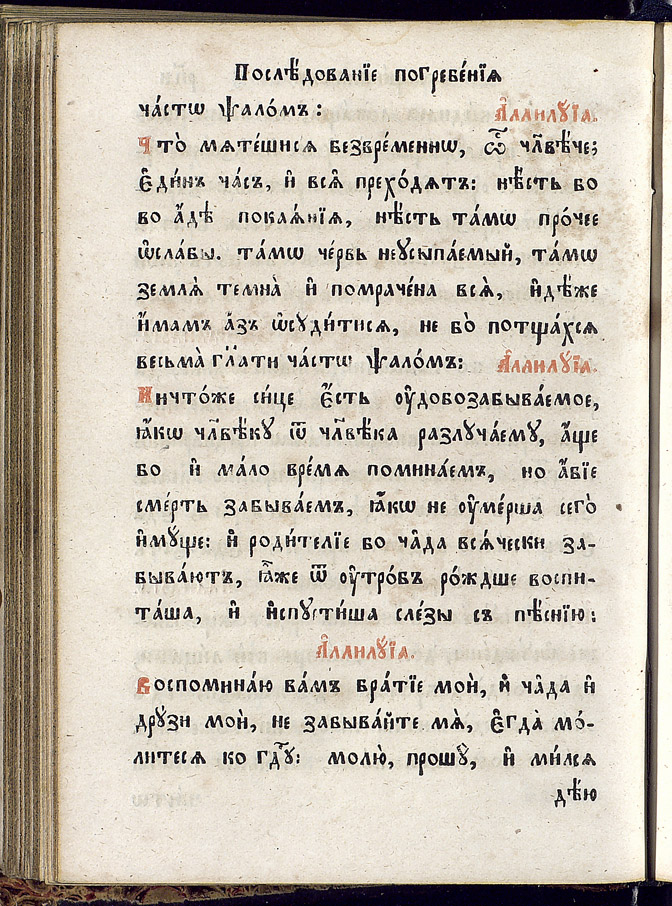 Послѣ́дованїе погребе́нїѧ
ча́стѡ ѱало́мъ: А҆ллилꙋ́їа.
Что̀ мѧте́шисѧ безвре́меннѡ, ѽ чл҃вѣ́че;
Є҆ди́нъ ча́съ, и҆ всѧ̑ прехо́дѧтъ: нѣ́сть бо
во а҆́дѣ покаѧ́нїѧ, нѣ́сть та́мѡ про́чее
ѡ҆сла́бы. та́мѡ че́рвь неꙋсыпа́емый, та́мѡ
землѧ̀ темна̀ и҆ помраче́на всѧ̀, и҆дѣ́же
и҆́мамъ а҆́зъ ѡ҆сꙋди́тисѧ, не бо̀ потща́хсѧ
весьма̀ гл҃ати ча́стѡ ѱало́мъ: А҆ллилꙋ́їа.
Ничто́же си́це є҆́сть оу҆добозабыва́емое,
ꙗ҆́кѡ чл҃вѣ́кꙋ ѿ чл҃вѣ́ка разлꙋча́емꙋ, а҆́ще
бо и҆ ма́ло вре́мѧ помина́емъ, но а҆́бїе
сме́рть забыва́емъ, ꙗ҆́кѡ не оу҆ме́рша сего̀
и҆мꙋ́ще: и҆ роди́телїе бо ча̑да всѧ́чески за-
быва́ютъ, ꙗ҆̀же ѿ оу҆тро́бъ ро́ждше воспи-
та́ша, и҆ и҆спꙋсти́ша сле́зы съ пѣ́снїю:
А҆ллилꙋ́їа.
Воспомина́ю ва́мъ бра́тїе моѝ, и҆ ча̑да и҆
дрꙋ́зи моѝ, не забыва́йте мѧ̀, є҆гда̀ мо́-
литесѧ ко гдⷭ҇ꙋ: молю̀, прошꙋ̀, и҆ ми́лсѧ
дѣ́ю